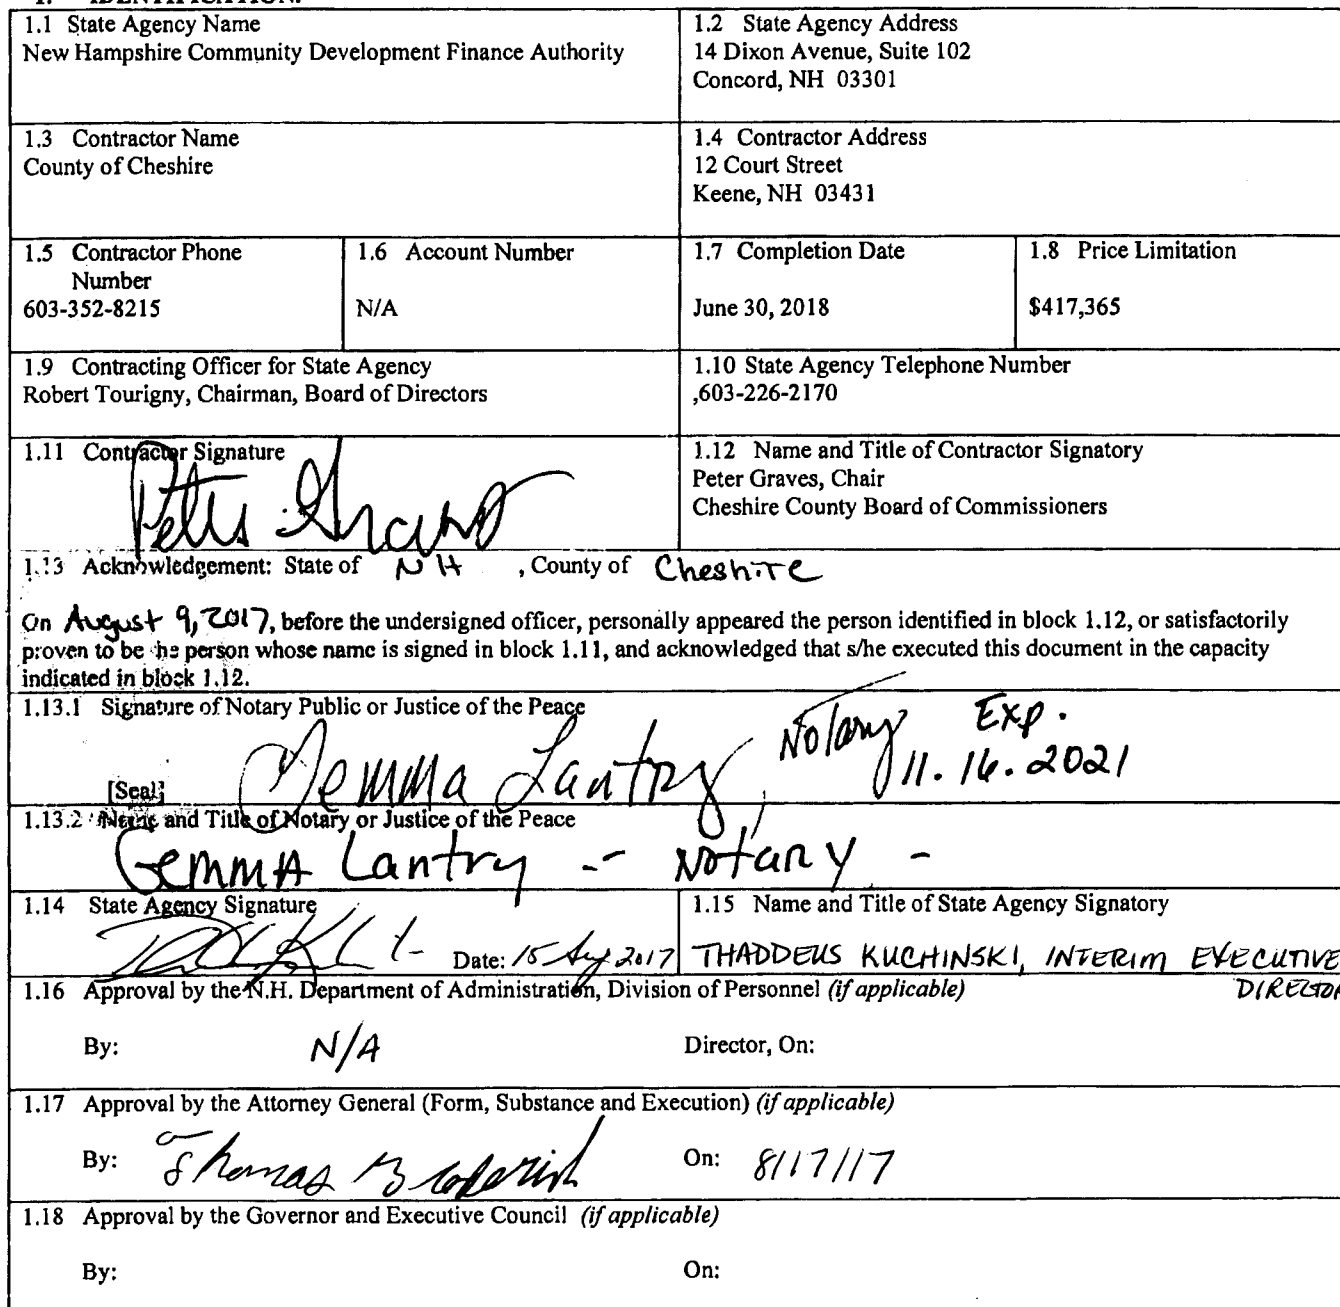 1. IDENTIFICATION.
1.1 State Agency Name
New Hampshire Community Development Finance Authority
1.2 State Agency Address
14 Dixon Avenue, Suite 102
Concord, NH 03301
1.3 Contractor Name
County of Cheshire
1.4 Contractor Address
12 Court Street
Keene, NH 03431
1.5 Contractor Phone
Number
603-352-8215
1.6 Account Number
N/A
1.7 Completion Date
June 30, 2018
1.8 Price Limitation
$417,365
1.9 Contracting Officer for State Agency
Robert Tourigny, Chairman, Board of Directors
1.10 State Agency Telephone Number
,603-226-2170
1.11 Contractor Signature
1.12 Name and Title of Contractor Signatory
Peter Graves, Chair
Cheshire County Board of Commissioners
1.13 Acknowledgement: State of NH , County of Cheshire
On August 9, 2017, before the undersigned officer, personally appeared the person identified in block 1.12, or satisfactorily
proven to be the person whose name is signed in block 1.11, and acknowledged that s/he executed this document in the capacity
indicated in block 1.12.
1.13.1 Signature of Notary Public or Justice of the Peace
Gemma Lantry, Notary Exp.
11.16.2021
[Seal]
1.13.2 Name and Title of Notary or Justice of the Peace
Gemma Lantry -- Notary -
1.14 State Agency Signature
Date: 15 Aug 2017
1.15 Name and Title of State Agency Signatory
THADDEUS KUCHINSKI, INTERIM EXECUTIVE
DIRECTOR
1.16 Approval by the N.H. Department of Administration, Division of Personnel (if applicable)
By: N/A Director, On:
1.17 Approval by the Attorney General (Form, Substance and Execution) (if applicable)
By: Thomas Broderick On: 8/17/17
1.18 Approval by the Governor and Executive Council (if applicable)
By: On: